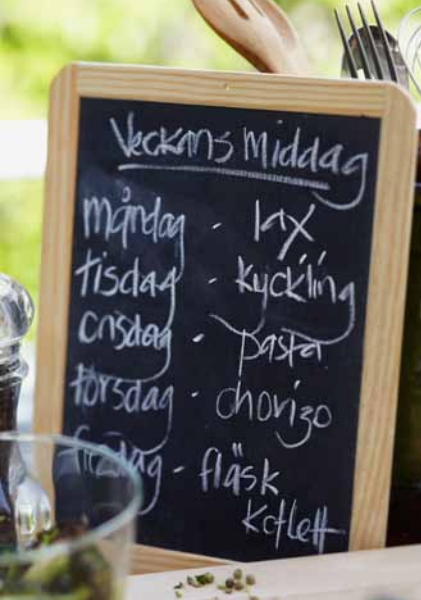 Veckans Middag
måndag - lax
tisdag - kyckling
onsdag - pasta
torsdag - chorizo
fredag - fläsk
kotlett